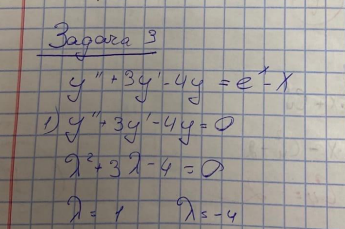 Задача 3
y'' + 3y' - 4y = e^x - x
1) y'' + 3y' - 4y = 0
λ² + 3λ - 4 = 0
λ = 1 λ = -4